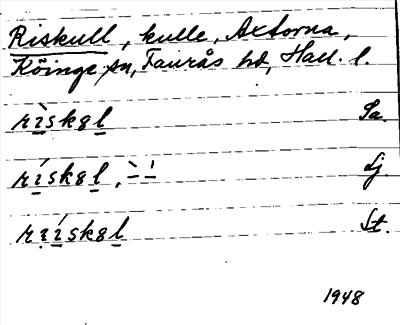 Riskull, kulle, Axtorna,
Köinge sn, Faurås hd, Hall. l.
rìskal Sa.
rískal, Lj.
riískal St.
1948